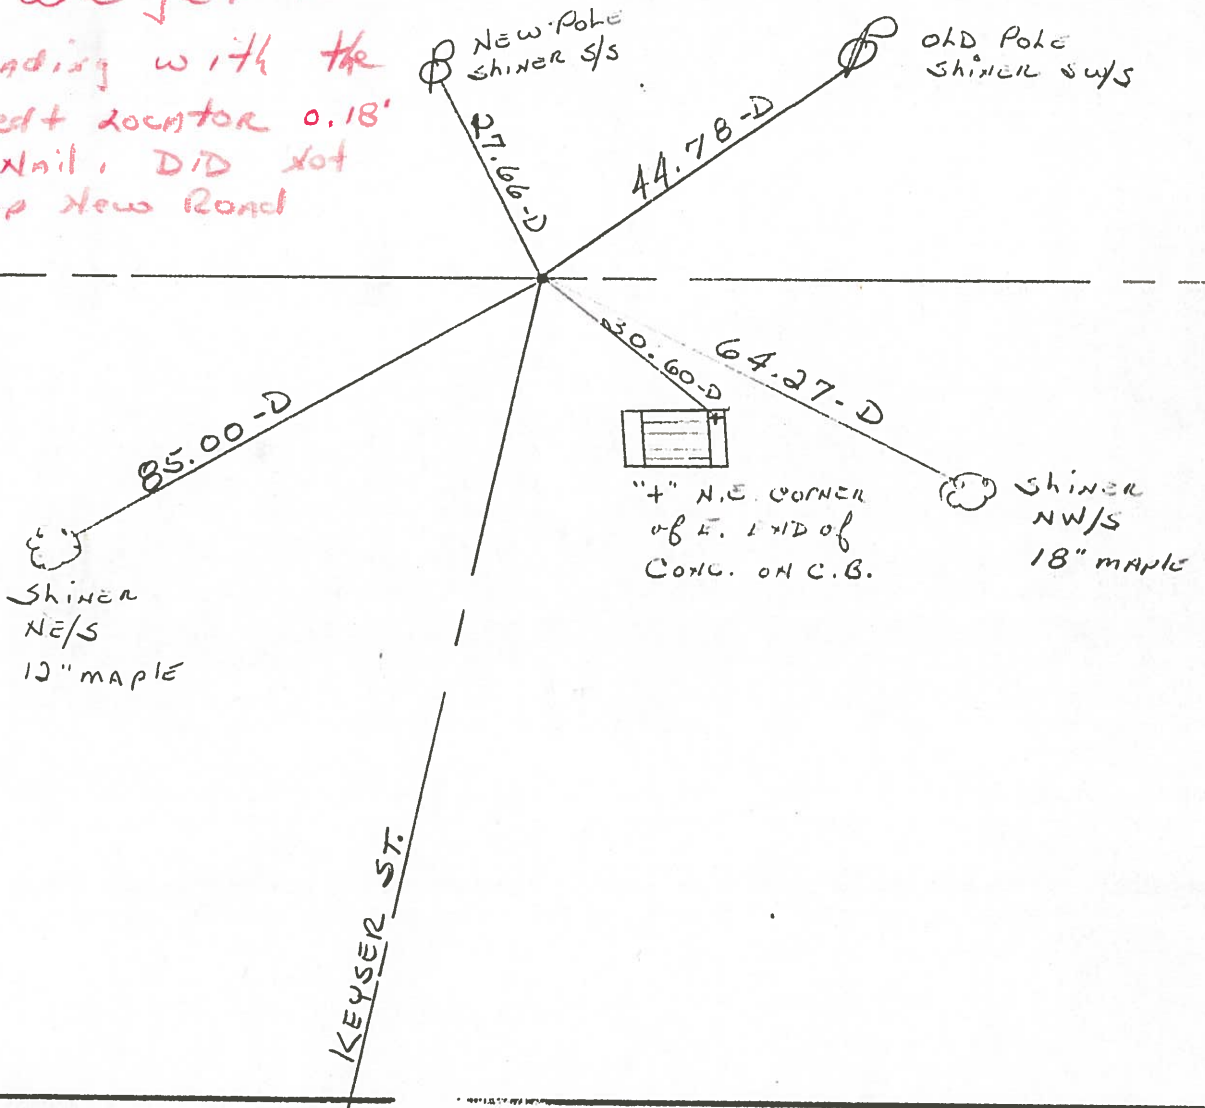 nding with the
Locator 0.18'
Nail. DID Not
New Road
NEW POLE
SHINER S/S
OLD POLE
SHINER SW/S
27.66-D
44.78-D
85.00-D
30.60-D
64.27-D
"+" N.E. CORNER
of E. END of
CONC. ON C.B.
SHINER
NW/S
18" MAPLE
SHINER
NE/S
12" MAPLE
KEYSER ST.